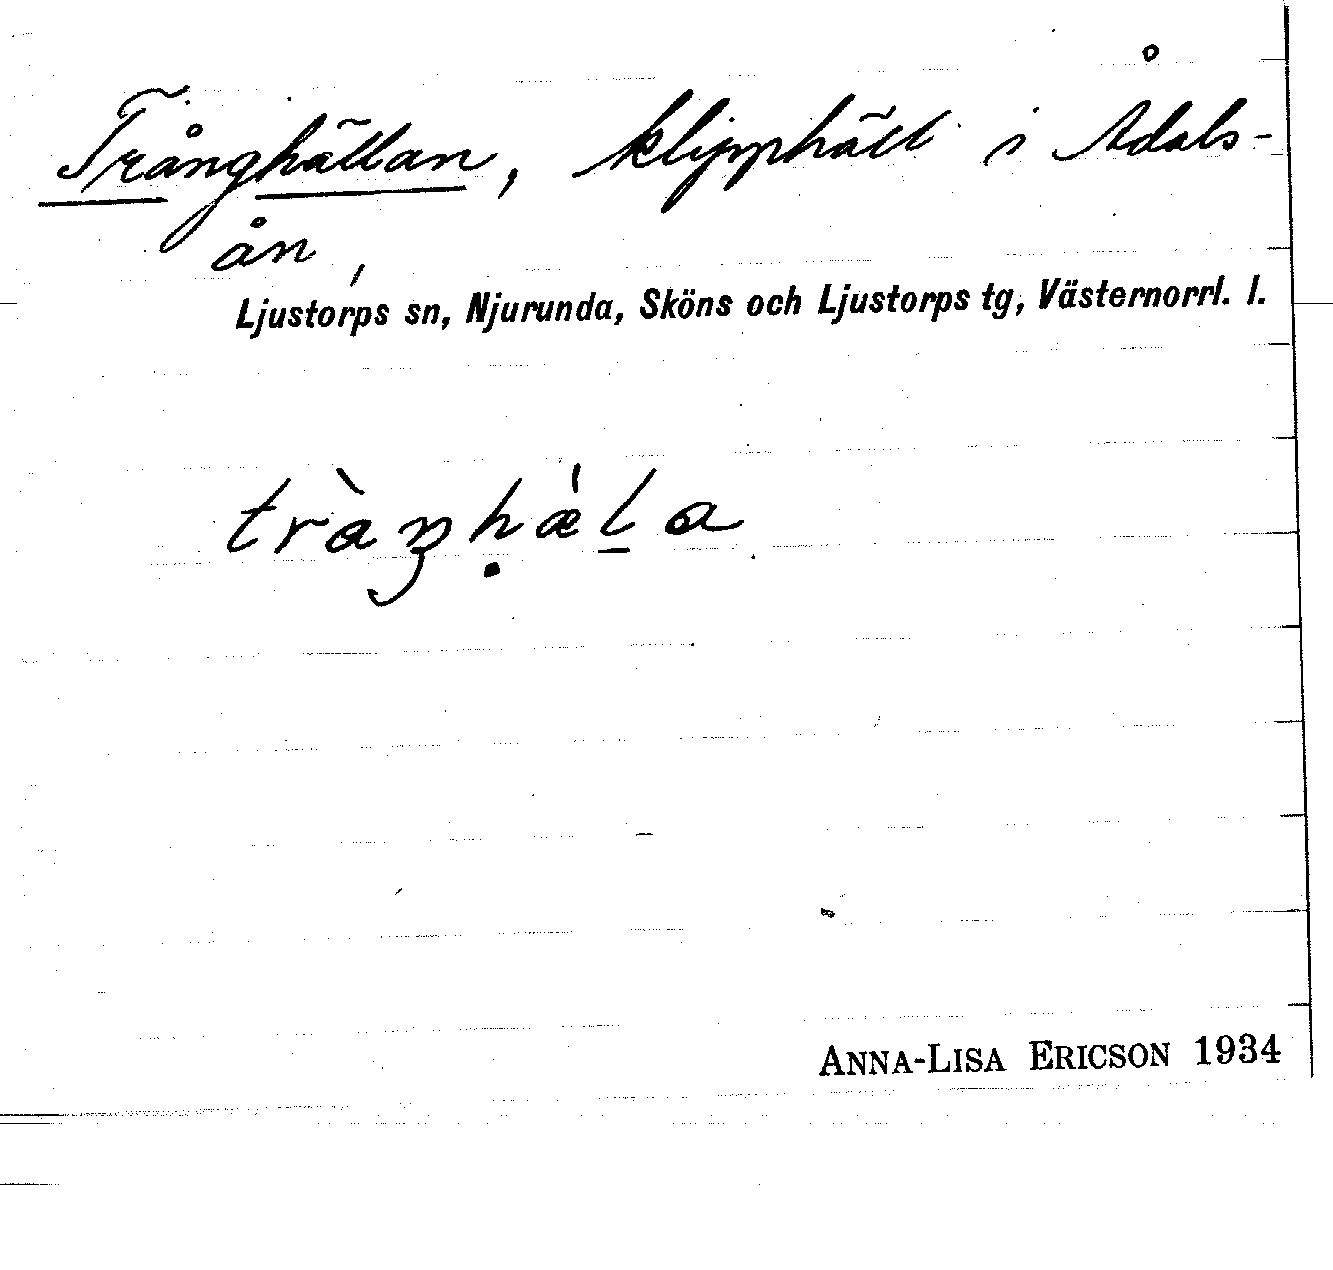 Trånghällan, klipphäll i Ådals-
ån,
Ljustorps sn, Njurunda, Sköns och Ljustorps tg, Västernorrl. l.
tràŋḥǽl̲a
ANNA-LISA ERICSON 1934